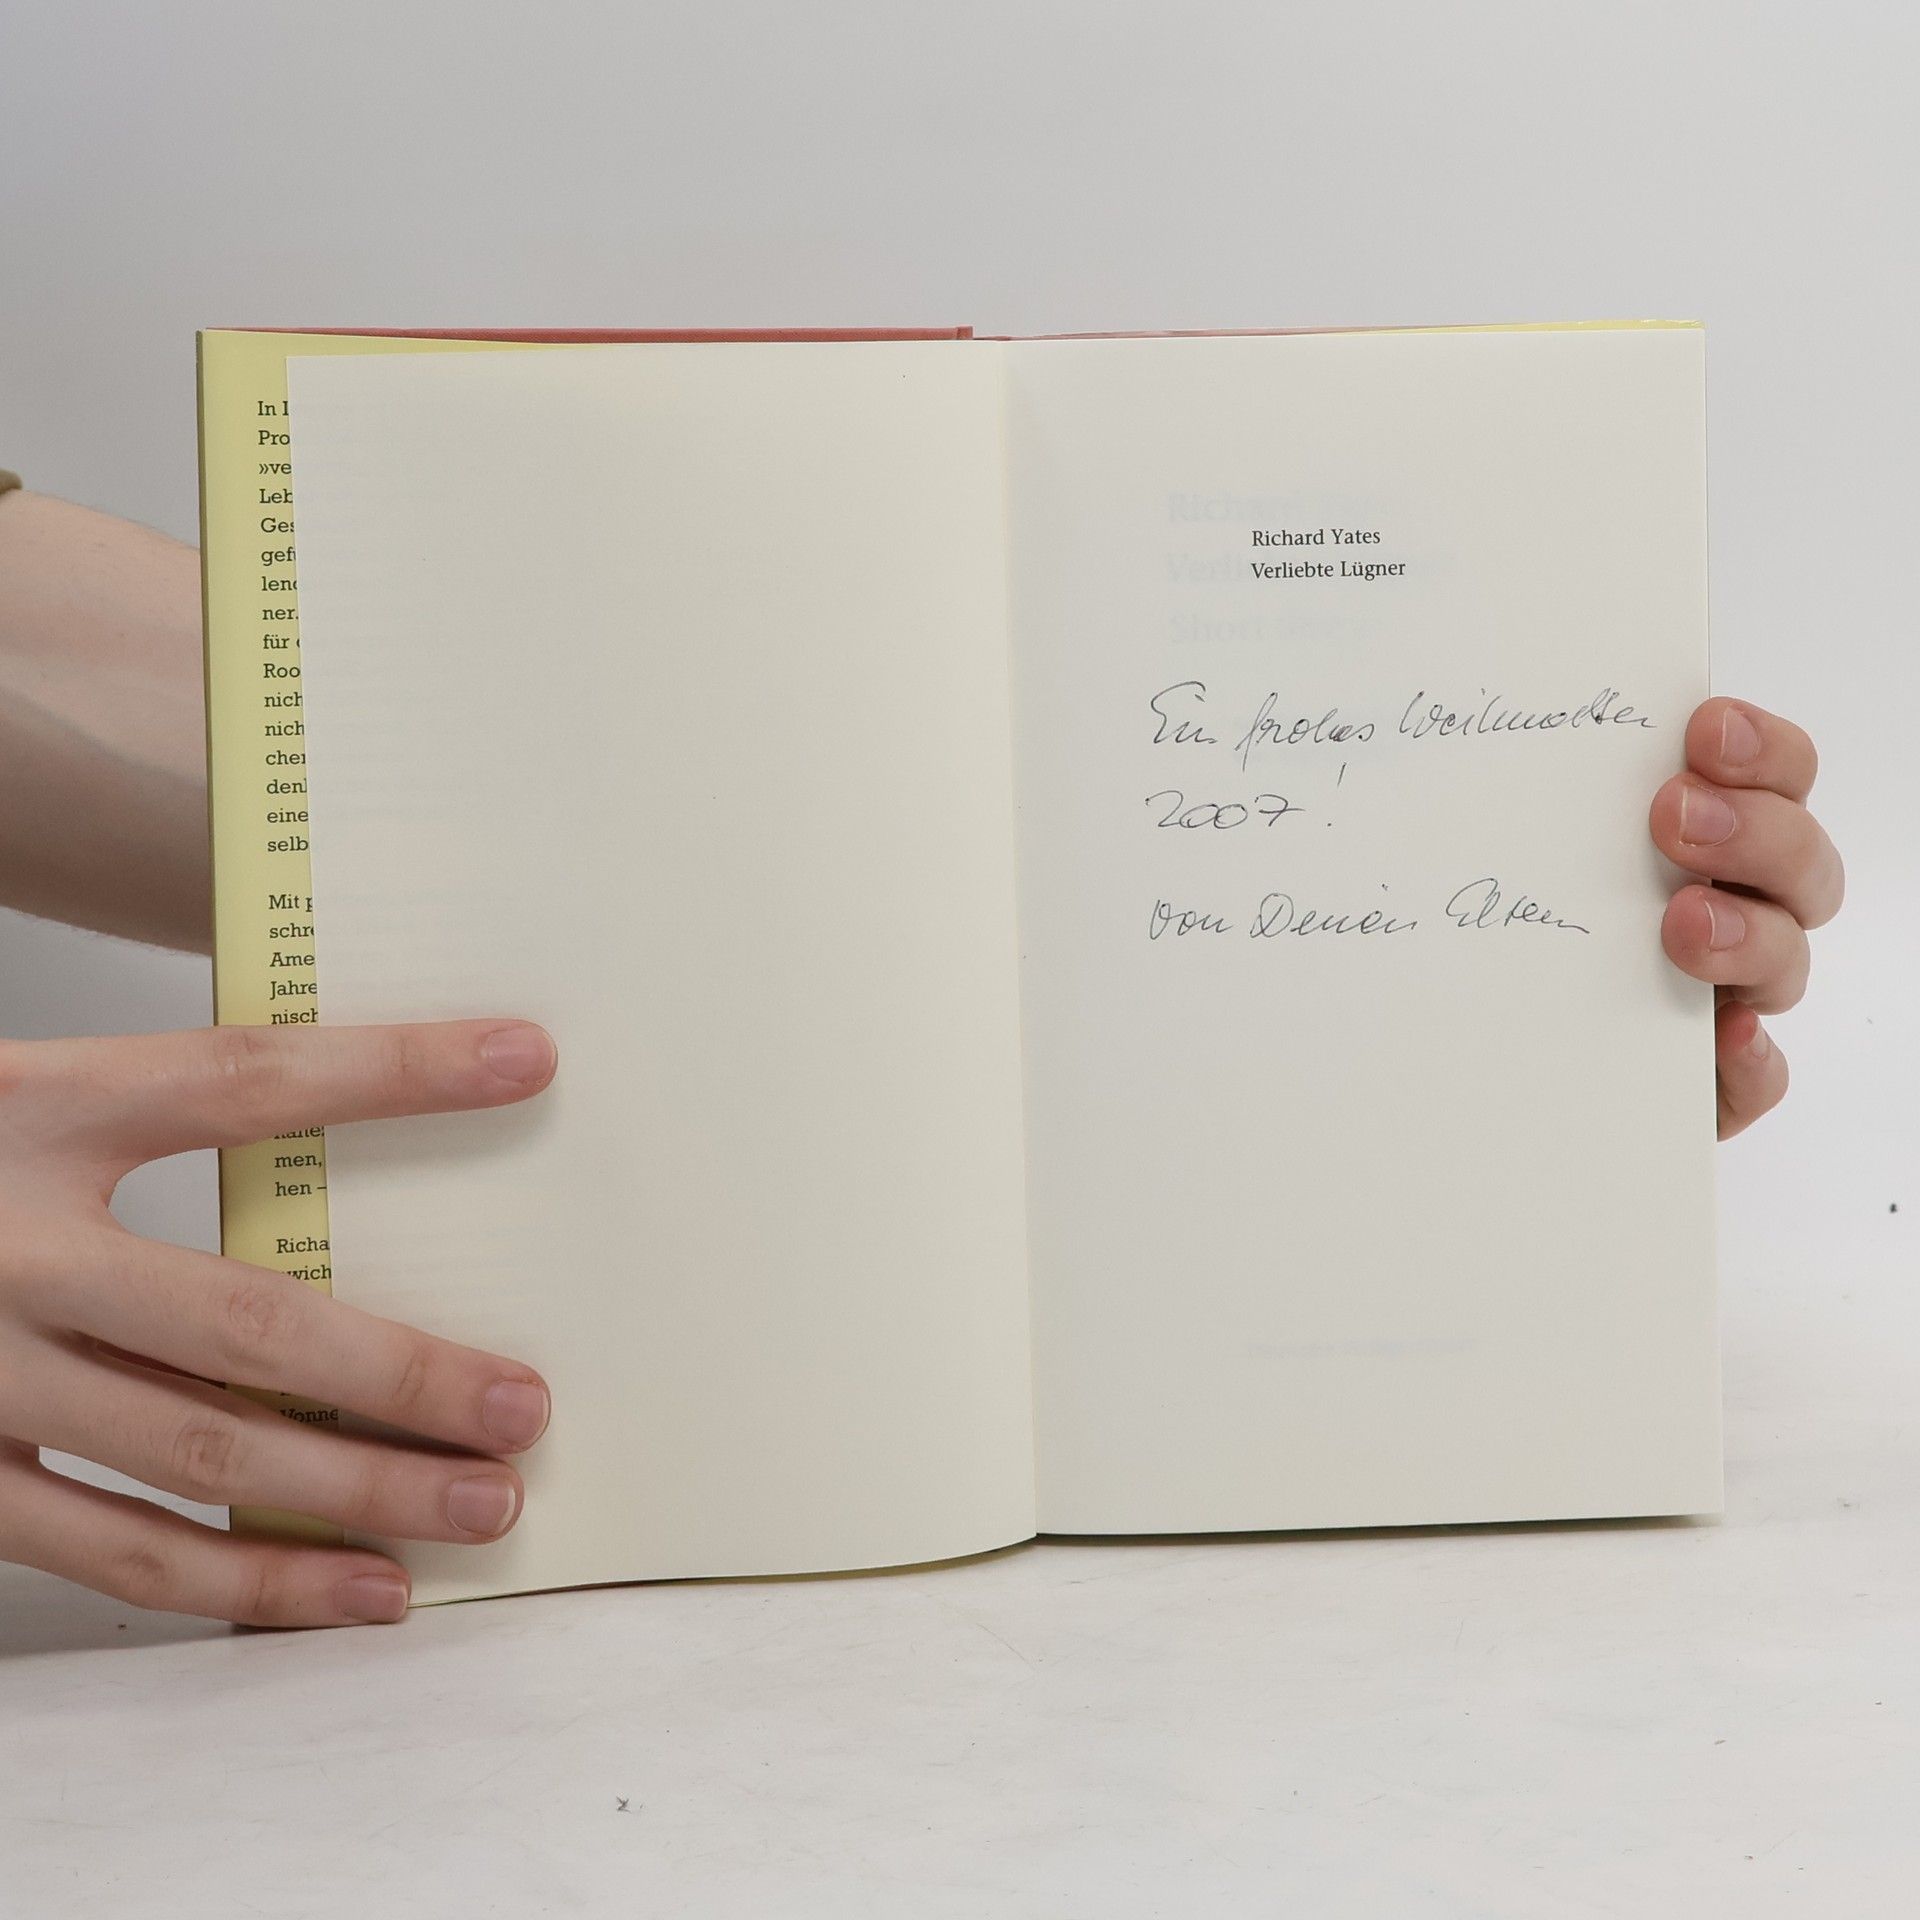 In I
Pro
»ve
Leb
Ges
gefü
lend
ner.
für
Roo
nich
nich
cher
denl
eine
selb
Mit p
schre
Ame
Jahre
nisch
men,
hen –
Richa
wich
Vonne
Richard Yates
Verliebte Lügner
Ein frohes Weihnachten
2007!
von Deinen Eltern